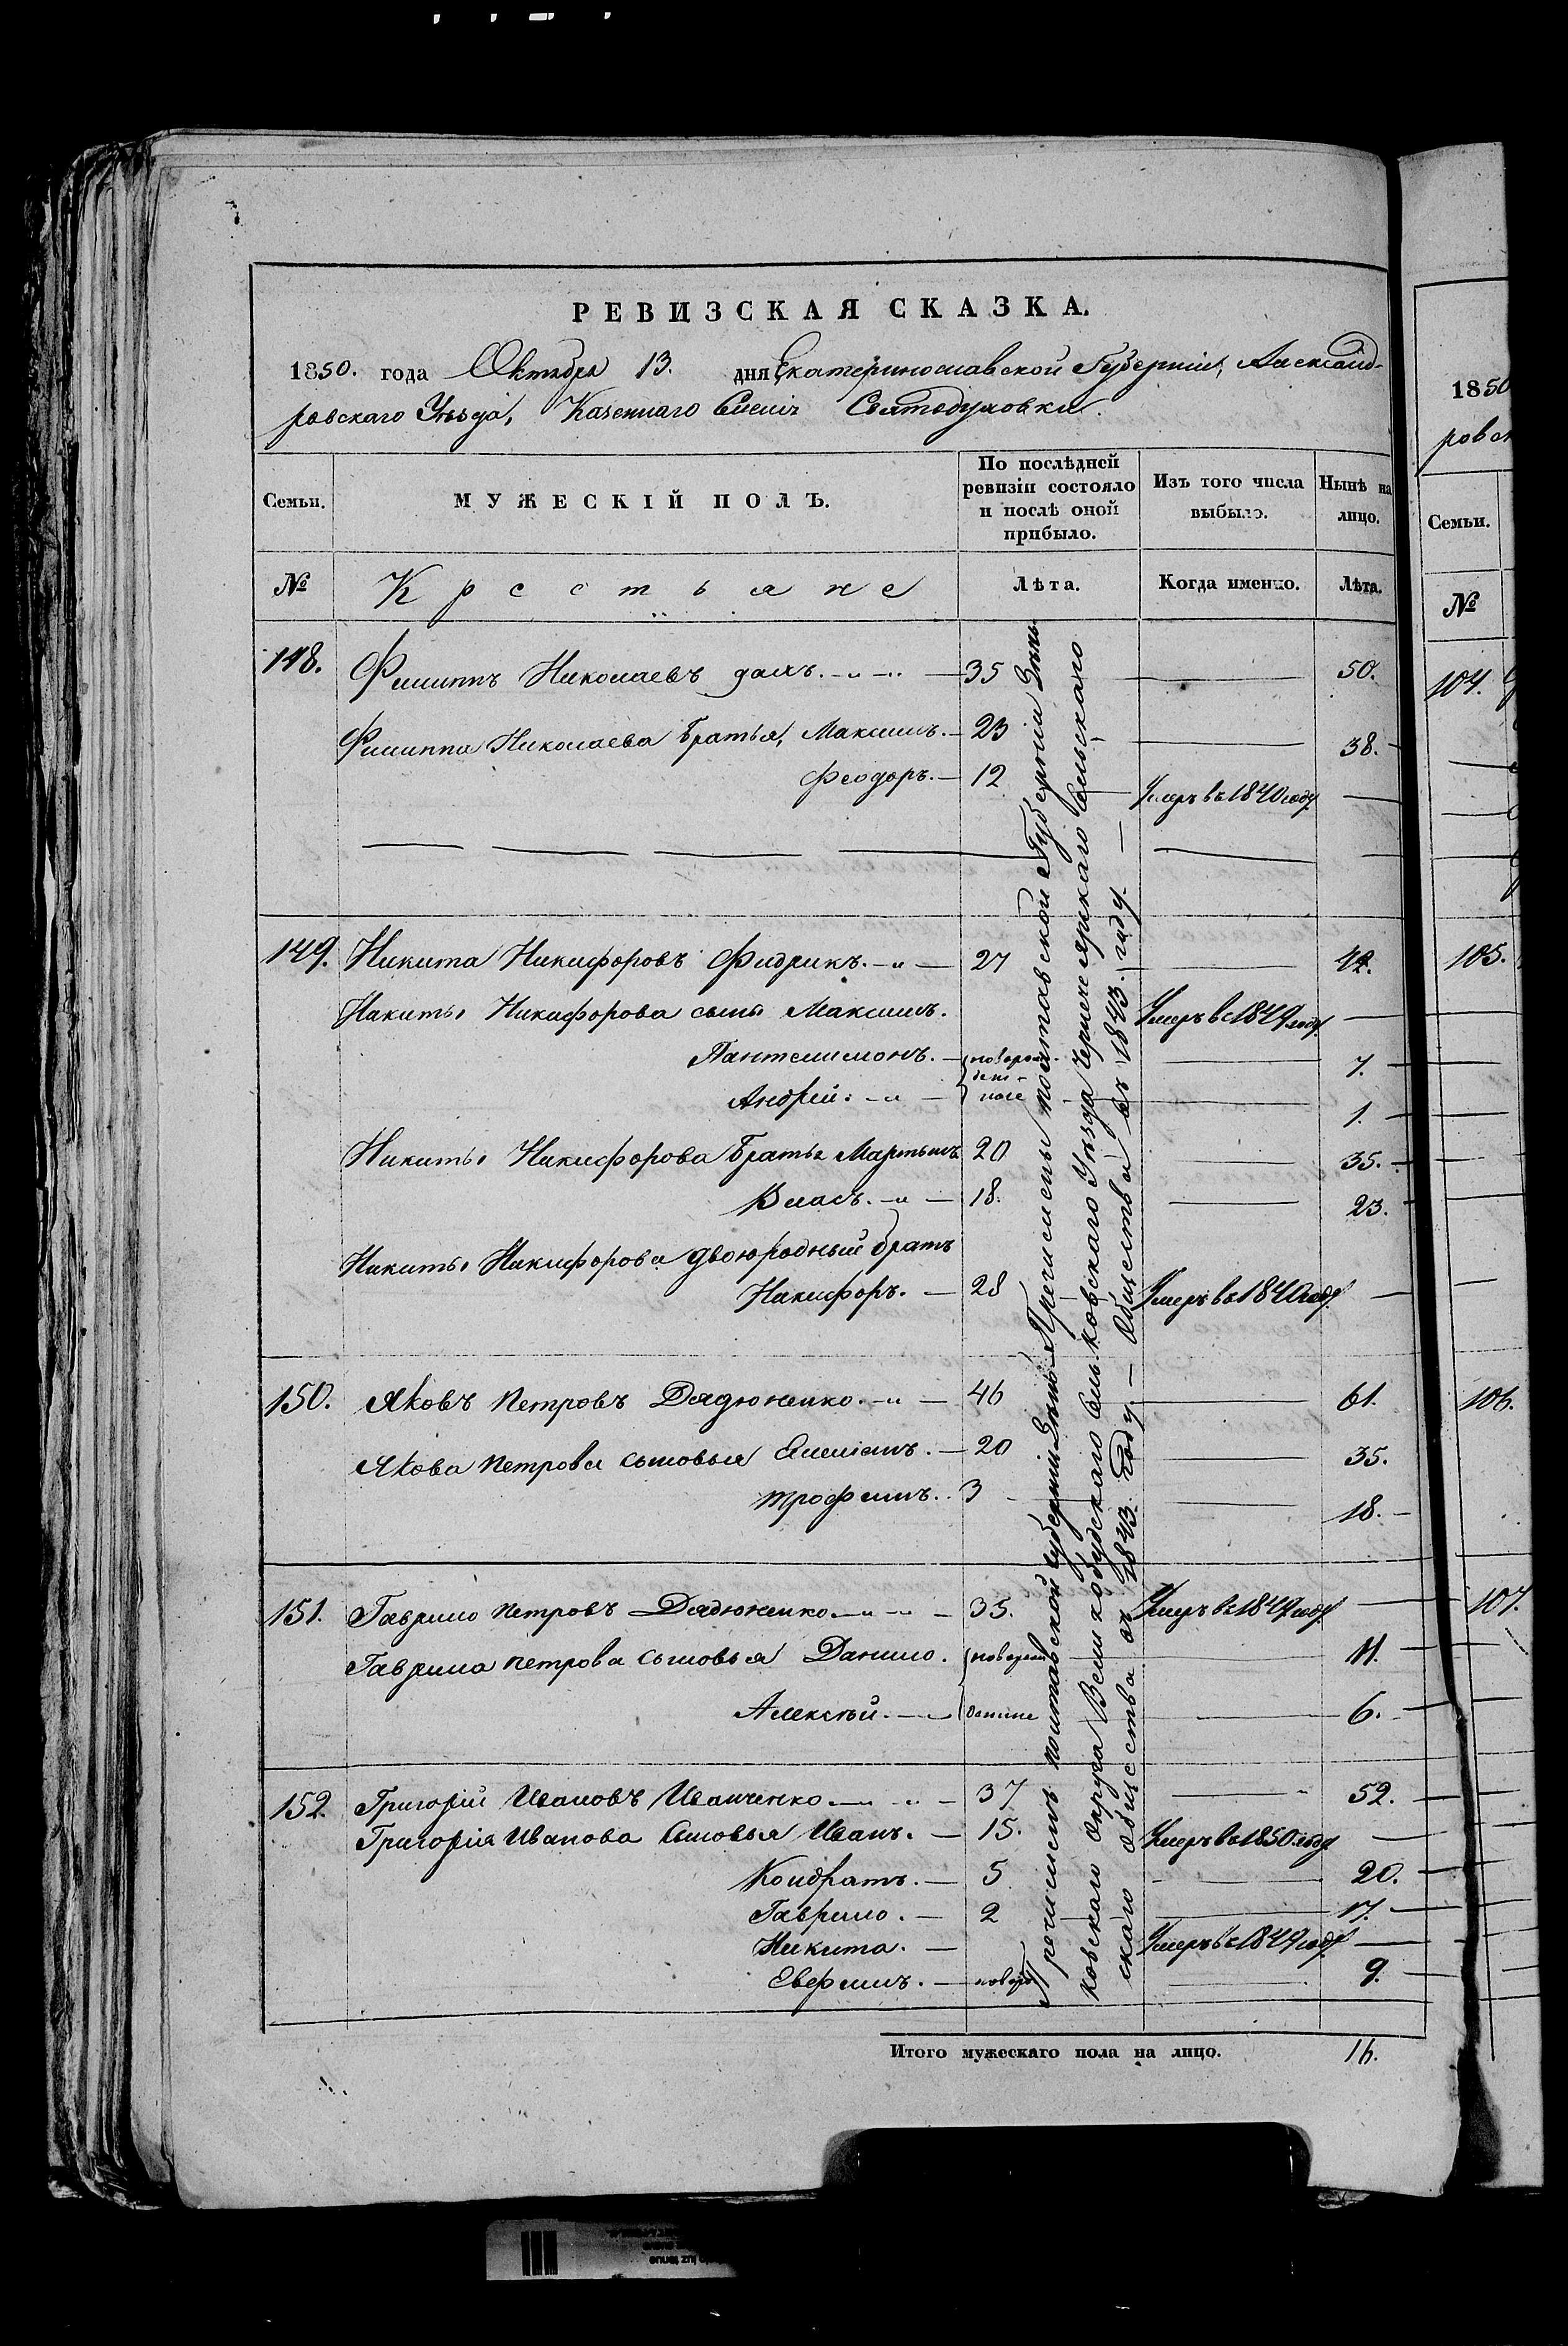 РЕВИЗСКАЯ СКАЗКА.
1850. года Октября 13. дня Екатеринославской Губерніи, Александ-
ровскаго Уѣзда, Казеннаго Селенія Святодуховки.
Семьи.
МУЖЕСКІЙ ПОЛЪ.
По послѣдней ревизіи состояло и послѣ оной прибыло.
Изъ того числа выбыло.
Нынѣ на лицо.
№
Крестьяне
Лѣта.
Когда именно.
Лѣта.
148. Филиппъ Николаевъ 35 50.
Филиппа Николаева братья, Максимъ. 23 38.
Феодоръ. 12 Умеръ въ 1840 году
149. Никита Никифоровъ Фидрикъ. 27 42.
Никиты Никифорова сынъ Максимъ. Умеръ въ 1849 году
Пантелимонъ. новорож- 7.
ден-
Андрей. ные 1.
Никиты Никифорова братья Мартынъ 20 35.
Власъ. 18. 23.
Никиты Никифорова двоюродный братъ
Никифоръ. 28 Умеръ въ 1840 году
150. Яковъ Петровъ Дядюненко. 46 61.
Якова Петрова сыновья Емеліанъ. 20 35.
Трофимъ. 3 18.
151. Гаврило Петровъ Дядюненко. 35. Умеръ въ 1849 году
Гаврила Петрова сыновья Данило. новорож 11.
Алексѣй. денные 6.
152. Григорій Ивановъ Иванченко. 37 52.
Григорія Иванова сыновья Иванъ. 15. Умеръ въ 1850 году
Кондратъ. 5 20.
Гаврило. 2 17.
Никита. Умеръ въ 1849 году
Евфимъ. новор 9.
Причислены Полтавской Губерніи Зинь-
ковскаго Уѣзда Сельскаго
Общества въ 1843. году.
Причисленъ Полтавской Губерніи Зинь-
ковскаго Округа Сельскаго
Общества въ 1843. году
Итого мужескаго пола на лицо. 16.
1850
ровск
Семьи.
№
104.
105.
106.
107.